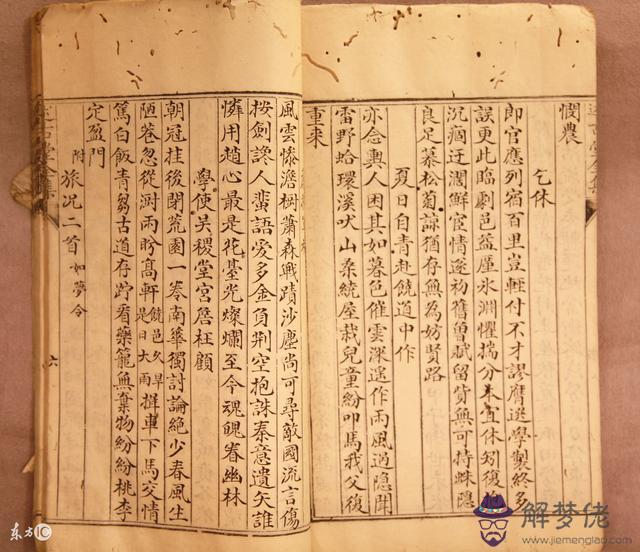 憫農
乞休
郎官應列宿百里豈輕付不才謬膺選學製終多
誤更此臨劇邑益厪氷淵懼揣分本宜休矧復抱
沉痼迂濶鮮宦情遂初舊曾賦留貲無可持蛛隱
良足慕松菊諒猶存無為妨賢路
夏日自青赴饒道中作
亦念輿人困其如暮色催雲深遙作雨風過隱聞
雷野蛤環溪吠山桑繞屋栽兒童紛叩馬我父復
重来
風雲慘澹樹蕭森戰蹟沙塵尚可尋敵國流言傷
按劍讒人蜚語愛多金負荆空抱誅秦意遺矢誰
憐用趙心最是花臺光燦爛至今魂魄眷幽林
學使吴稷堂宫詹枉顧
朝冠挂後閉荒園一卷南華獨討論絶少春風生
陋巷忽從澍雨盼高軒饒邑久旱是日大雨㨋車下馬交情
篤白飯青芻古道存貯看藥籠無棄物紛紛桃李
定盈門
附旅况二首如夢令
六
东方IC
解梦佬
www.jiemenglao.com